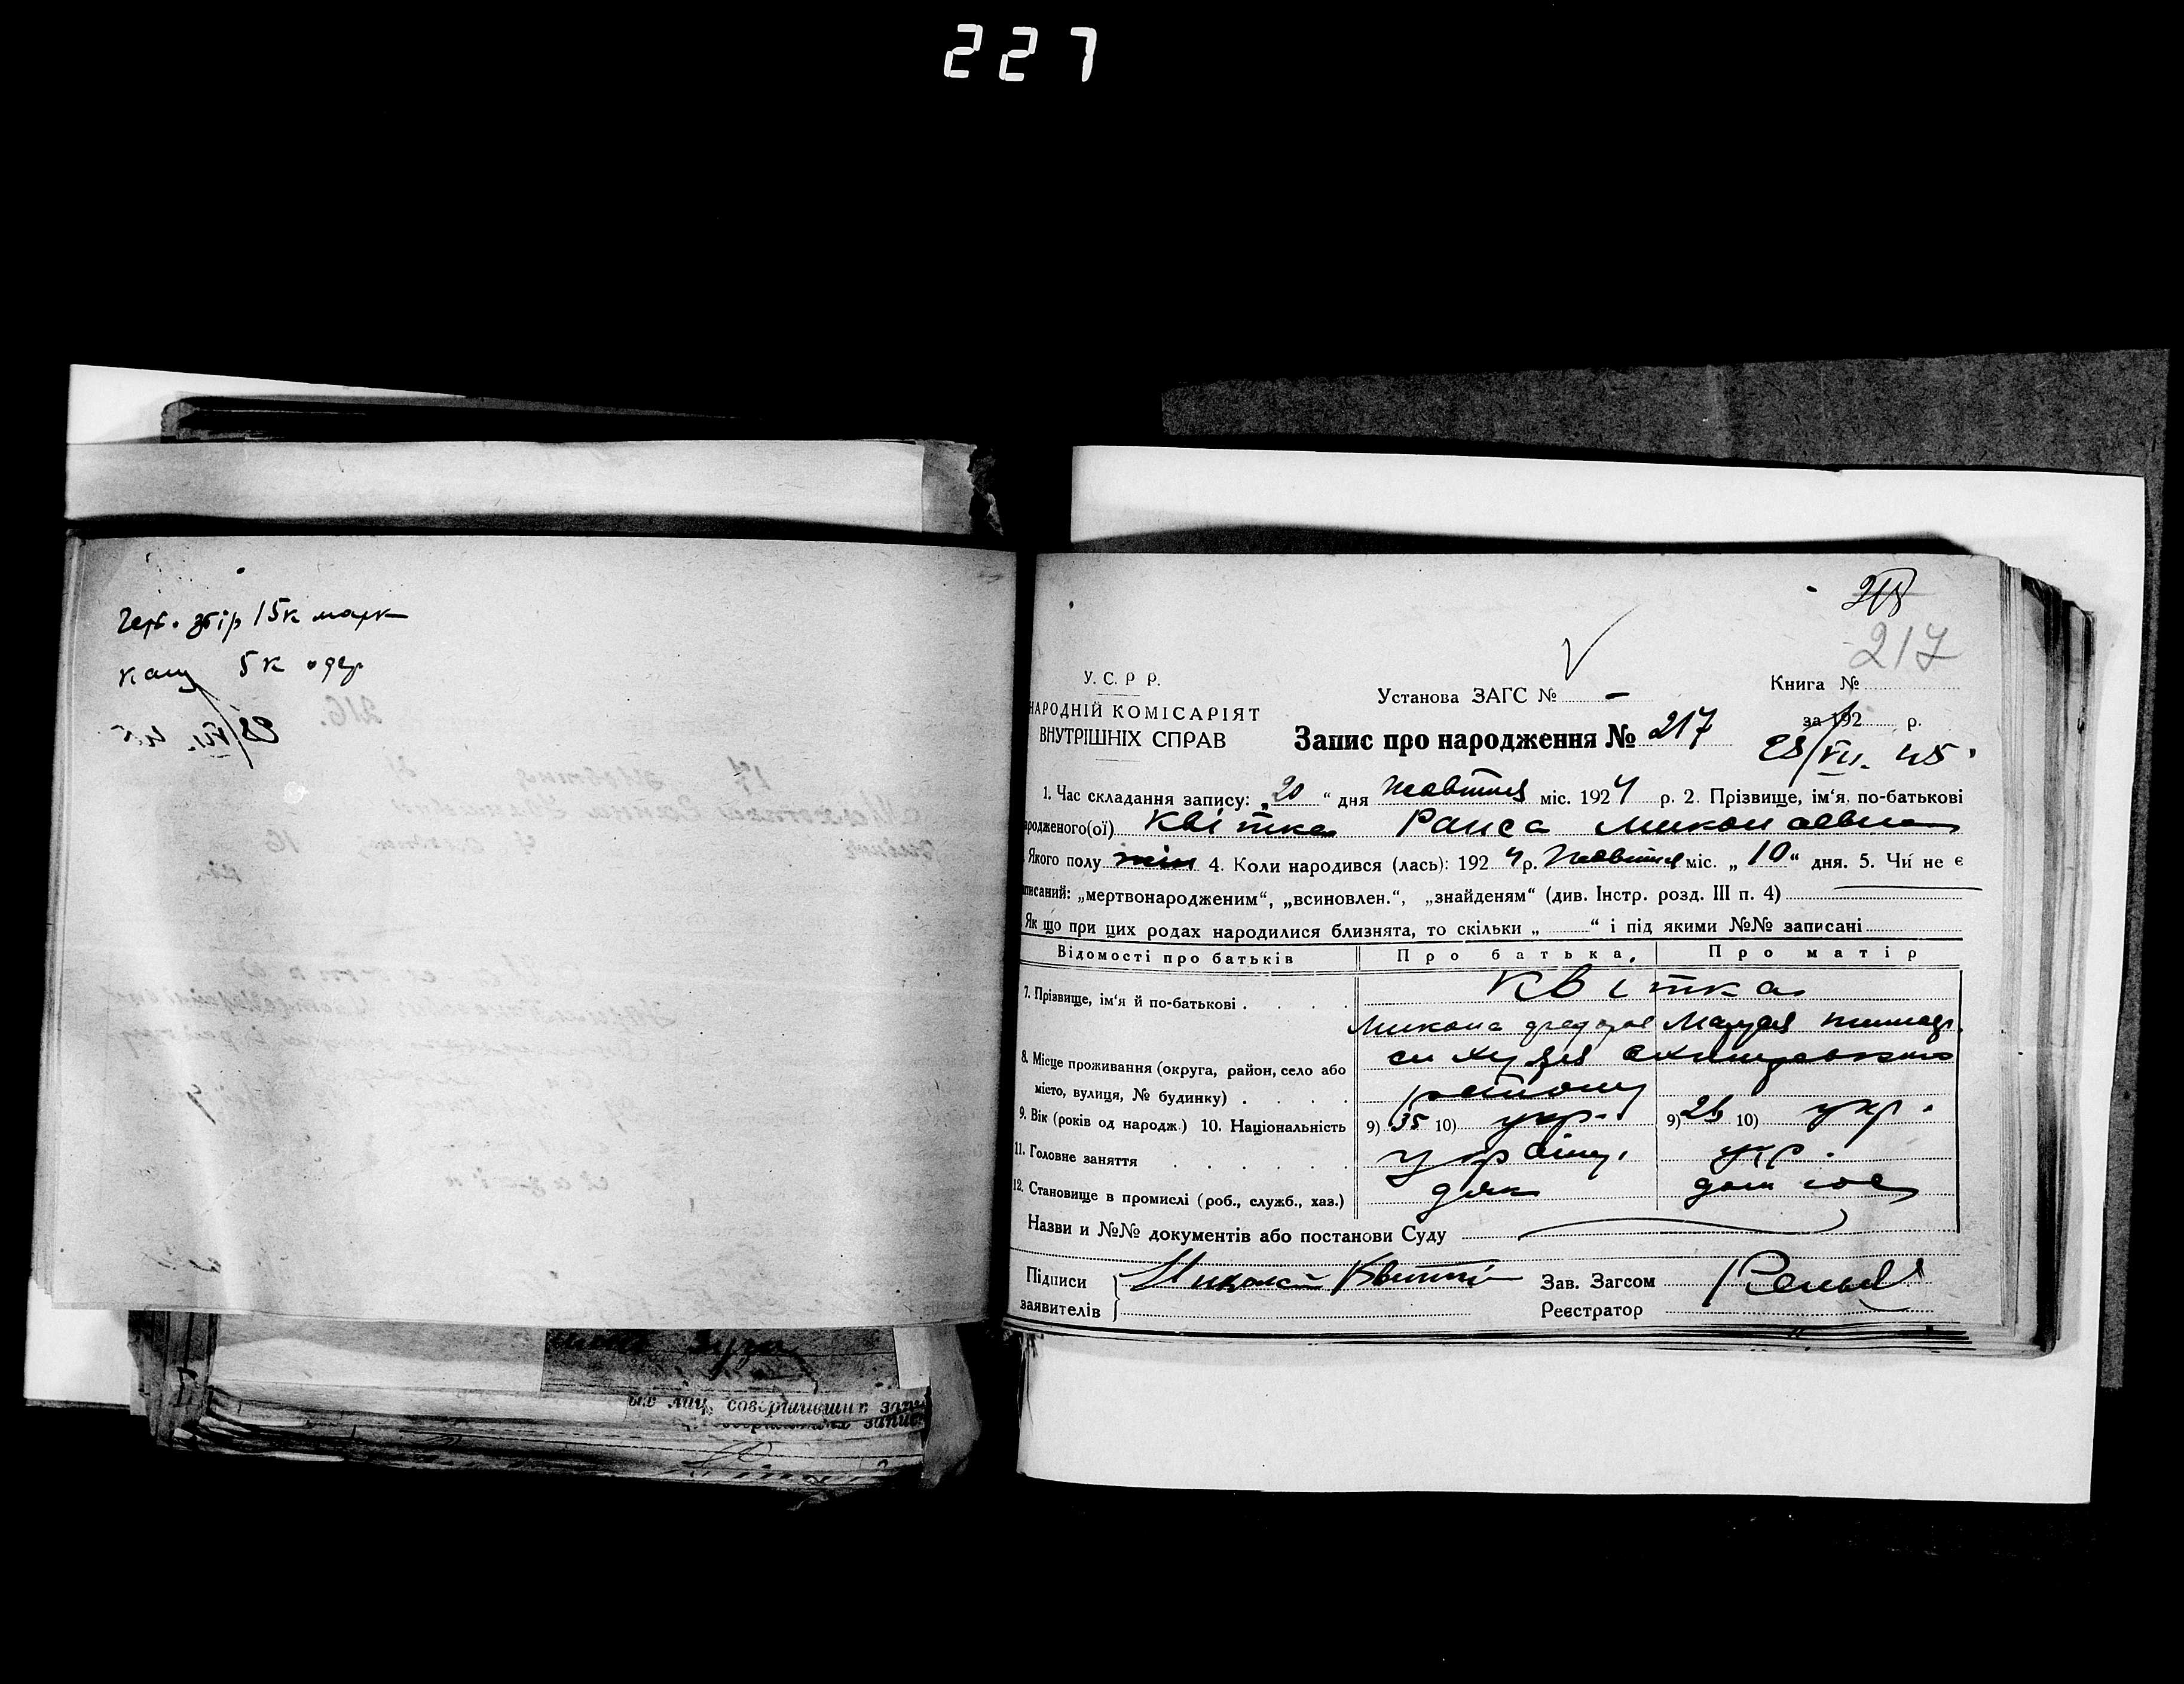 227
Герб. збір 15к марк
канц 5к одер
28/VII. 45
218
217
У. С. Р Р.
НАРОДНІЙ КОМІСАРІЯТ
ВНУТРІШНІХ СПРАВ
Установа ЗАГС № –
Книга №
за 192 р.
Запис про народження № 217
28/VII. 45
1. Час складання запису: „20“ дня жовтня міс. 1924 р. 2. Прізвище, ім‘я, по-батькові
родженого(ої) Квітка Раиса Миколаевна
Якого полу жін 4. Коли народився (лась): 1924 р. Жовтня міс. „10“ дня. 5. Чи не є
писаний: „мертвонародженим“, „всиновлен.“, „знайденям“ (див. Інстр. розд. III п. 4)
Як що при цих родах народилися близнята, то скільки „ “ і під якими №№ записані
Відомості про батьків Про батька. Про матір
7. Прізвище, ім‘я й по-батькові . . . . Квітка
Микола Мария
8. Місце проживання (округа, район, село або
місто, вулиця, № будинку) . . . . району
9. Вік (років од народж) 10. Національність 9) 35 10) укр. 9) 26 10) укр.
11. Головне заняття . . . . . . україн. укр.
12. Становище в промислі (роб., служб., хаз.) дяк дом гос
Назви и №№ документів або постанови Суду
Підписи
заявителів
Николай Квитка
Зав. Загсом
Реєстратор
ых лиц, совершивших запи